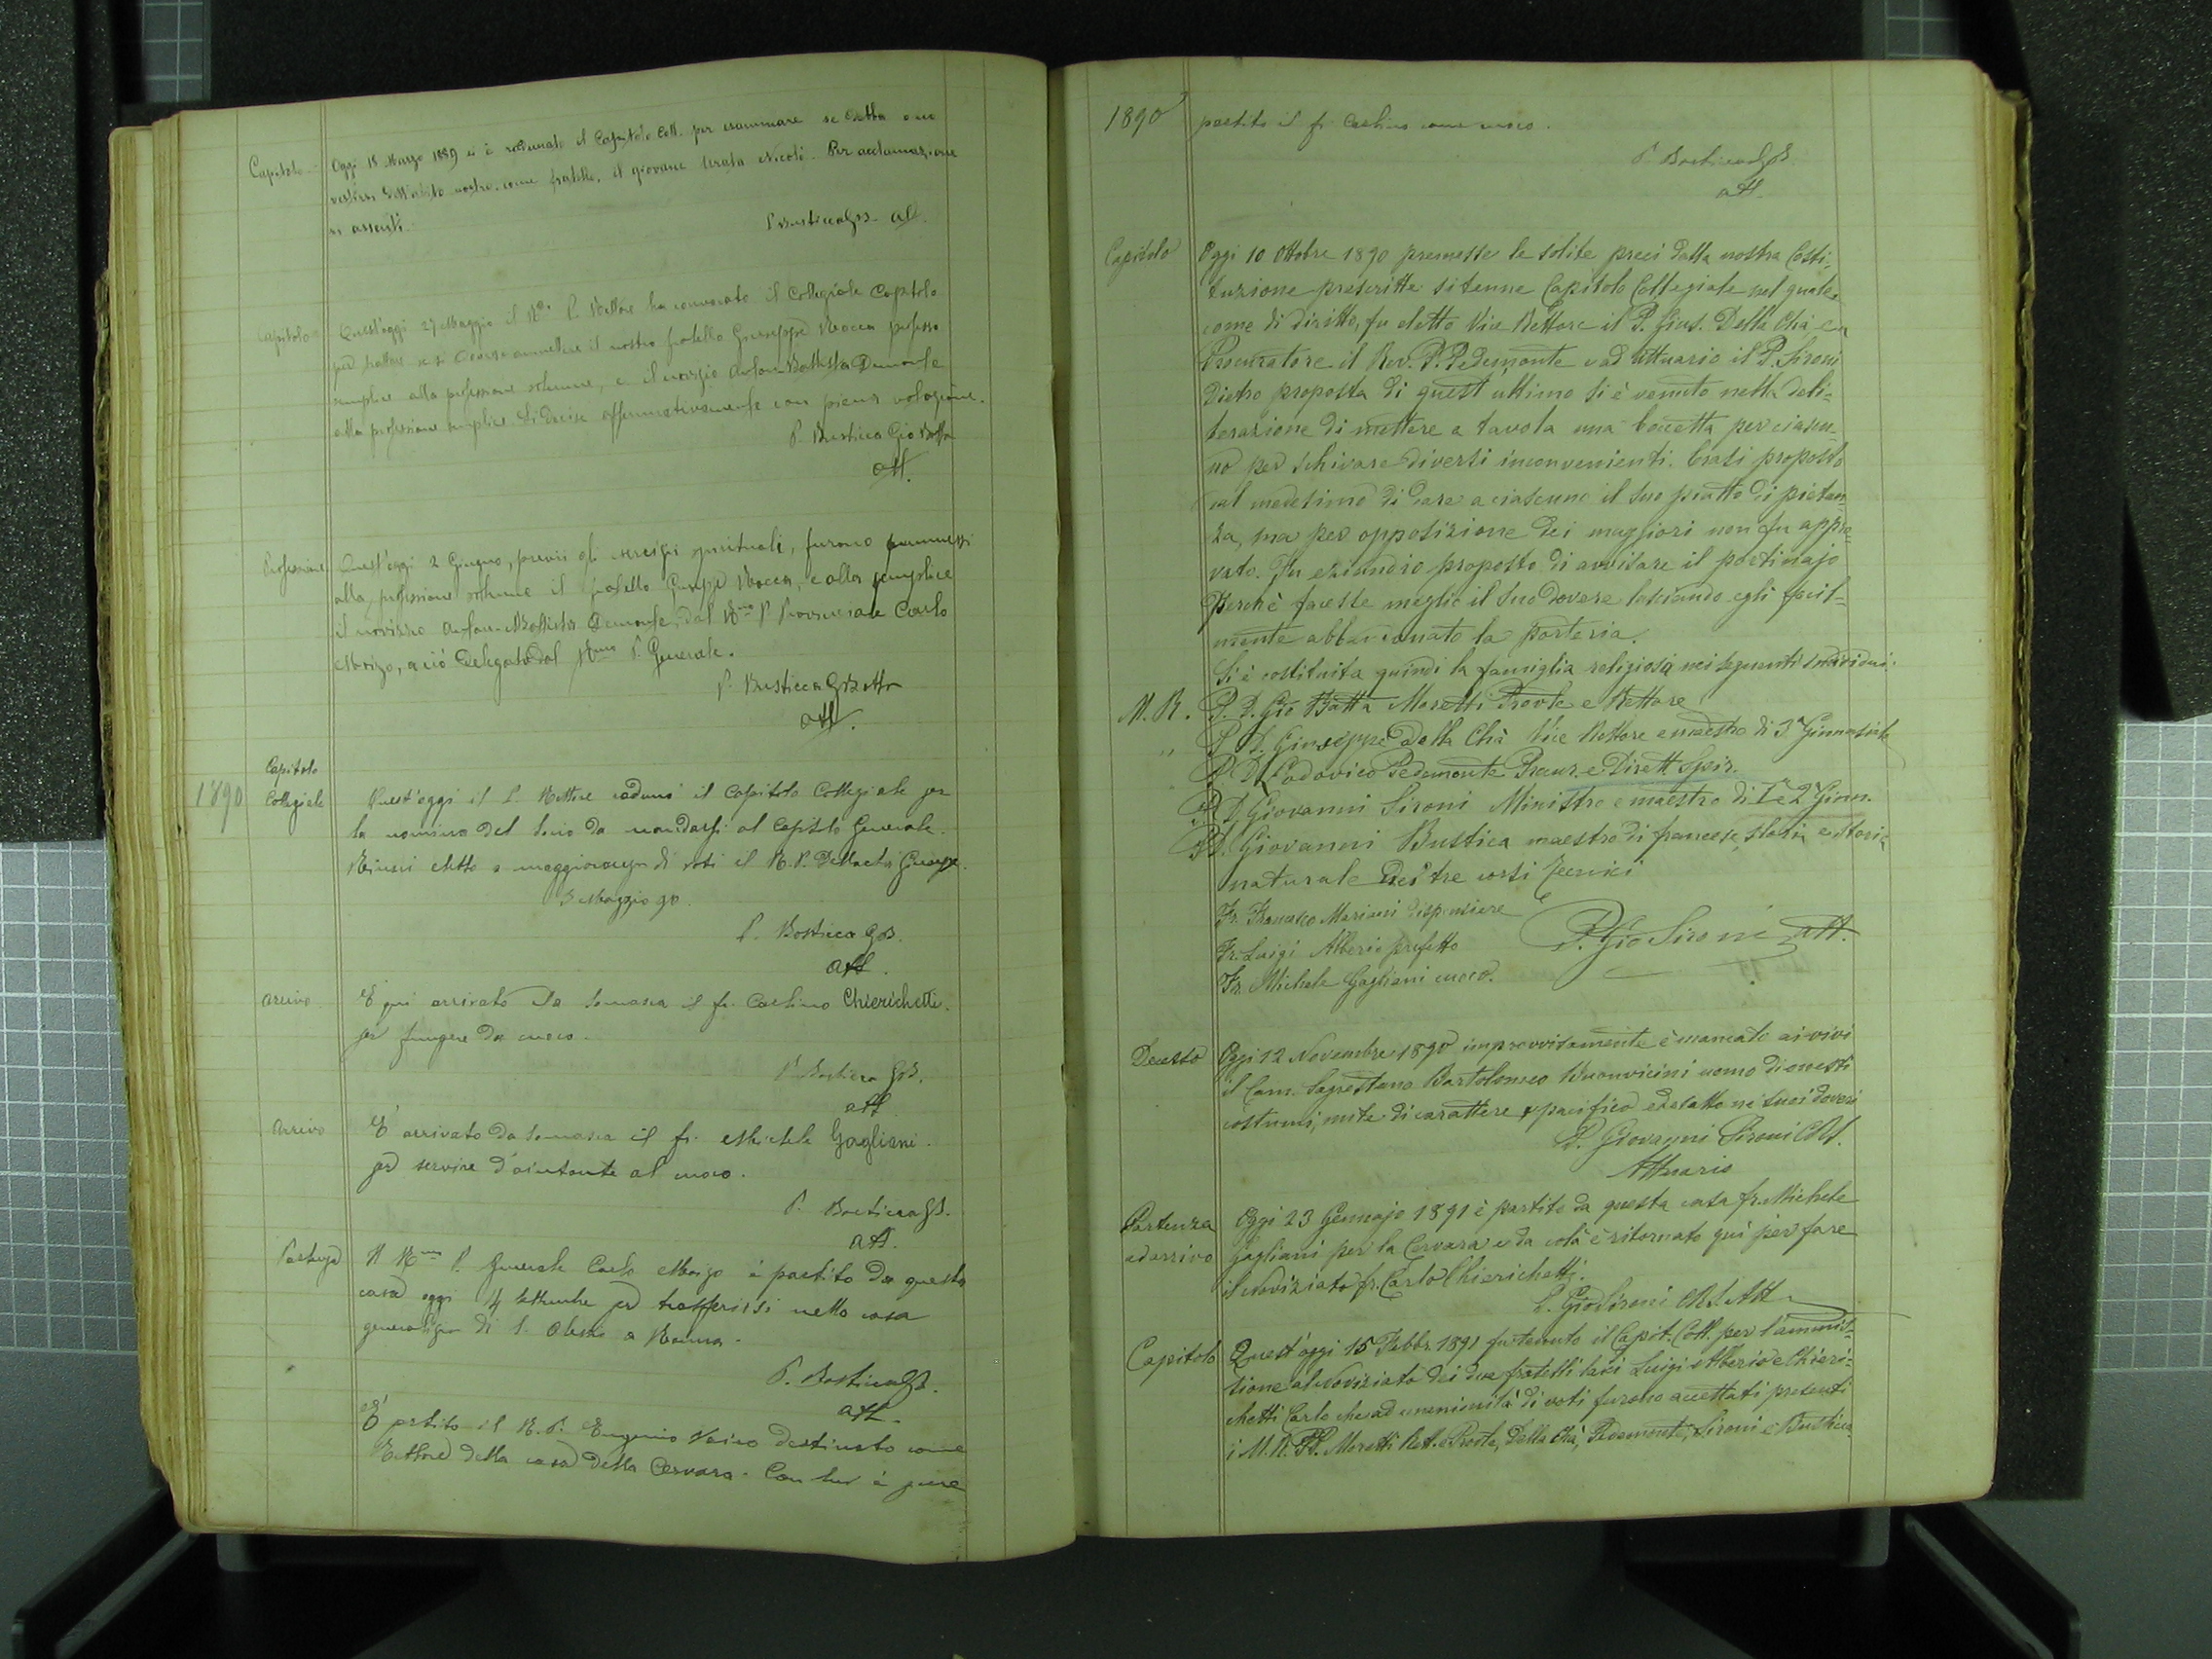 Capitolo Oggi 18 Marzo 1889 si è radunato il Capitolo Coll. per esaminare se
vestirsi dell'abito nostro, come fratello, il giovane Nicolò. Per acclamazione
si assentì.
P. Bustica GB. att.
Capitolo Quest'oggi 27 Maggio il P. Rettore ha convocato il Collegiale Capitolo
per trattare se si dovesse ammettere il nostro fratello Giuseppe Rocca professo
semplice alla professione solenne, e il novizio Battista Demonte
alla professione semplice. Si decise affermativamente con piena votazione.
P. Bustica Gio Batta
att.
Professione Quest'oggi 2 Giugno, previi gli esercizi spirituali, furono ammessi
alla professione solenne il fratello Giuseppe Rocca, e alla semplice
il novizio Battista Demonte, dal Rmo P. Provinciale Carlo
Moizo, a ciò Delegato dal Rmo P. Generale.
P. Bustica GBatta
att.
1890 Capitolo
Collegiale Quest'oggi il P. Rettore radunò il Capitolo Collegiale per
la nomina del Socio da mandarsi al Capitolo Generale.
Riuscì eletto a maggioranza di voti il R. P. Dellachà Giuseppe.
3 Maggio 90.
P. Bustica GB.
att.
Arrivo È qui arrivato da Somasca il fr. Carlino Chierichetti
per fungere da cuoco.
P. Bustica GB.
att
Arrivo È arrivato da Somasca il fr. Michele Gagliani
per servire d'aiutante al cuoco.
P. Bustica GB.
att.
Partenza Il Rmo P. Generale Carlo Moizo è partito da questa
casa oggi 14 Settembre per trasferirsi nella casa
generalizia di S. Alessio a Roma.
P. Bustica GB.
att.
È partito il R. P. Eugenio destinato come
Rettore della casa della Cervara. Con lui è pure
1890 partito il fr. Carlino come cuoco.
P. Bustica GB.
att.
Capitolo Oggi 10 Ottobre 1890 premesse le solite preci dalla nostra Costi-
tuzione prescritte si tenne Capitolo Collegiale nel quale,
come di diritto, fu eletto Vice Rettore il P. Gius. Della Chà e a
Procuratore il Rev. P. Pedemonte e ad Attuario il P. Sironi.
Dietro proposta di quest'ultimo si è venuto nella deli-
berazione di mettere a tavola una boccetta per ciascu-
no per schivare diversi inconvenienti. Erasi proposto
dal medesimo di dare a ciascuno il suo piatto di pietan-
za, ma per opposizione dei maggiori non fu appro-
vato. Fu eziandio proposto di avvisare il portinajo
perchè facesse meglio il suo dovere lasciando egli facil-
mente abbandonato la porteria.
Si è costituita quindi la famiglia religiosa nei seguenti individui:
M. R. P. D. Gio Batta Moretti Provle e Rettore
" P. D. Giuseppe Della Chà Vice Rettore e maestro di 3a Ginnasiale
P. D. Lodovico Pedemonte Procur. e Dirett. Spir.
P. D. Giovanni Sironi Ministro e maestro di I e 2 Ginn.
P. D. Giovanni Bustica maestro di francese, storia e storia
naturale nei tre corsi Tecnici
Fr. Francesco Mariani dispensiere
Fr. Luigi Alberio prefetto
P. Gio Sironi att.
Fr. Michele Gagliani cuoco.
Decesso Oggi 12 Novembre 1890 improvvisamente è mancato ai vivi
il Cam. Sagrestano Bartolomeo Buonvicini uomo di onesti
costumi, mite di carattere e pacifico ed esatto ne' suoi doveri
P. Giovanni Sironi CRS.
Attuario
Partenza Oggi 23 Gennajo 1891 è partito da questa casa fr. Michele
ed arrivo Gagliani per la Cervara e da colà è ritornato qui per fare
il Noviziato fr. Carlo Chierichetti.
P. Gio Sironi CRS. Att
Capitolo Quest'oggi 15 Febbr. 1891 fu tenuto il Capit. Coll. per l'ammis-
sione al Noviziato dei due fratelli laici Luigi Alberio e Chieri-
chetti Carlo che ad unanimità di voti furono accettati presenti
i M. R. PP. Moretti Rett. e Provle, Della Chà, Pedemonte, Sironi e Bustica